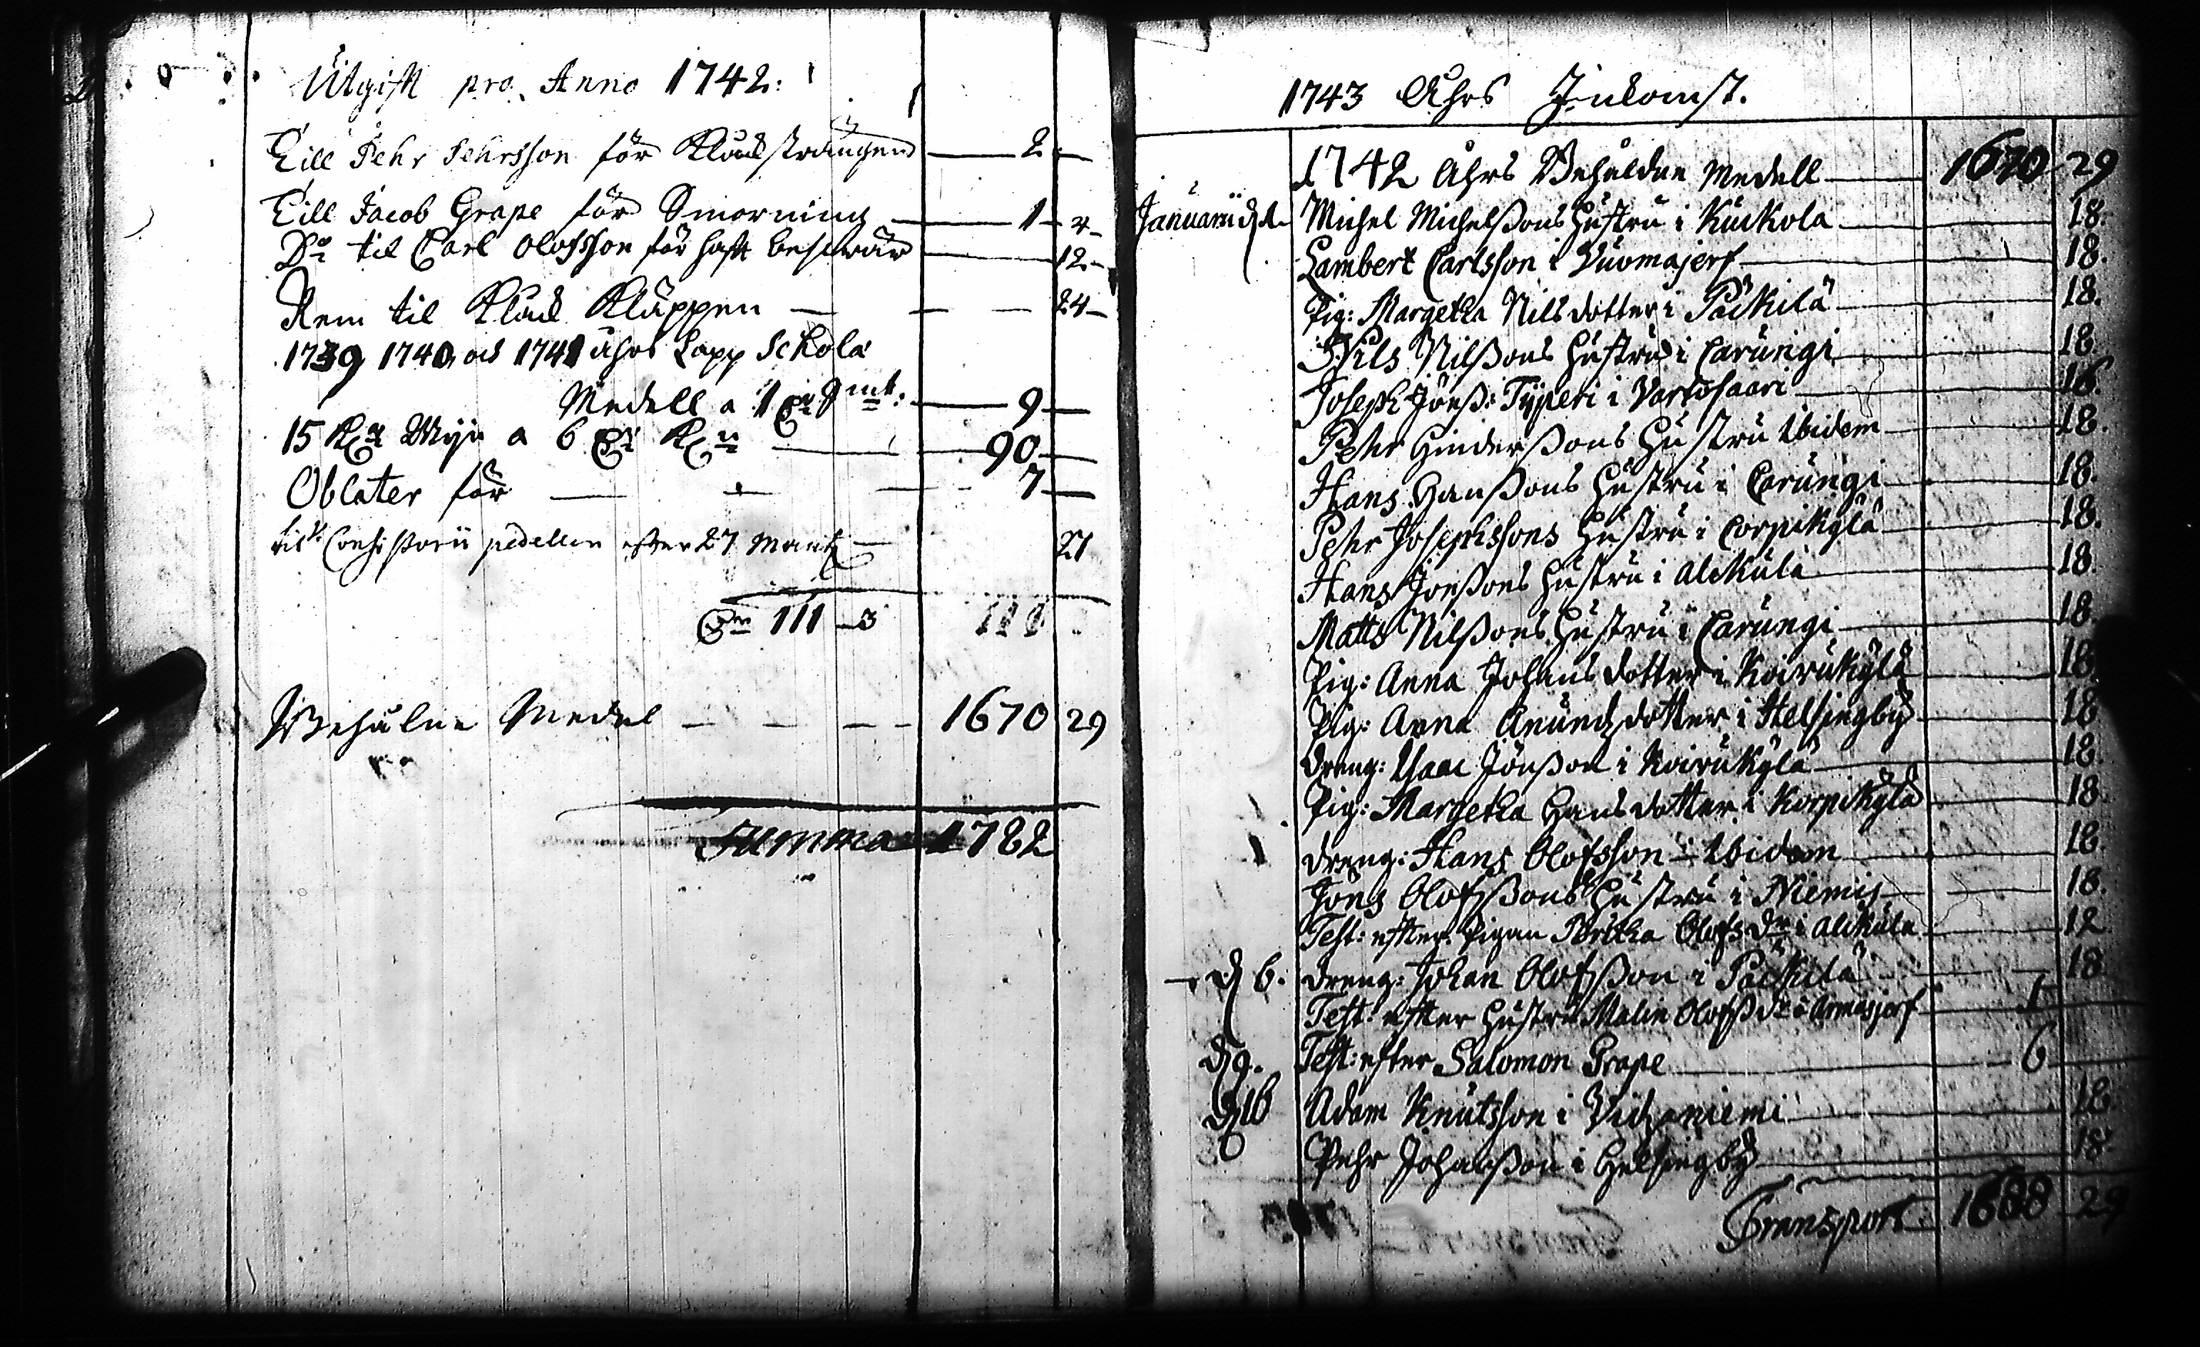 Utgift pro Anno 1742:
Till Pehr Pehrsson för Klockstrången 2
Till Jacob Grape för Smörning 1 4
Do til Carl Olofsson för haft besswär 12
Rem til Klock Kläppen 24
1739 1740 och 1741 åhrs Lapp Schola
Medell a 1 9 mk: 9
15 Kr Wijn a 6 Kn 90
Oblater för 7
till Consistorii pedellen efter 27 Martz 21
Sm 111 3 111
Behålne Medel 1670 29
Summa 1782
1743 Åhrs Inkomst.
1742 Åhrs Behåldne Medell 1670 29
Januarii d. 1 Michel Michelßons Hustru i Kuckola 18.
Lambert Carlsson i Vuomajerf 18.
Pig: Margetha Nils dotter i Päckilä 18.
Nils Nilßons Hustru i Carungi 18.
Joseph Jönß: Typeri i Vartosaari 16
Pehr Hinderßons Hustru Ibidem 18.
Hans Hanßons Hustru i Carungi 18.
Pehr Josephssons Hustru i Corpikylä 18.
Hans Jönßons Hustru i Alckula 18
Matts Nilßons Hustru i Carungi 18
Pig: Anna Johans dotter i Koirukylä 18
Pig: Anna Anunds dotter i Helsingby 18
Dreng: Isaac Jönßon i Koirukylä 18
Pig: Margetha Hans dotter i Korpikylä 18
Dreng: Hans Olofsson Ibidem 18.
Jöns Olofßons Hustru i Niemis 18.
Test: efter Pigan Olofs Dr i Alckula 12
d 6. Dreng: Johan Olofßon i Päckilä 18
Test: efter Hustru Malin Olofß Dr i Armasjerf 1
d 9. Test: efter Salomon Grape 6
d 16 Adam Knutsson i Vitzaniemi 18.
Pehr Johanßon i Helsingby 18.
Transport 1688 29